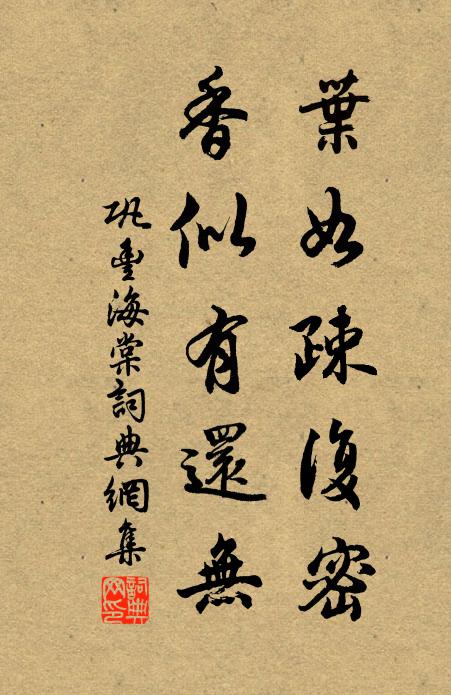 葉如疎復密
香似有還無
巩豐海棠詞典網集
詞典網印